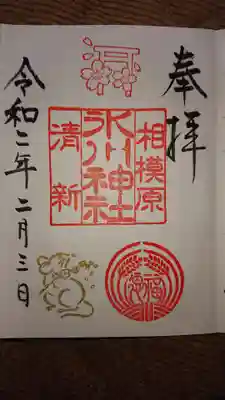 奉拝
相模原
氷川神社
清新
福
令和二年二月三日